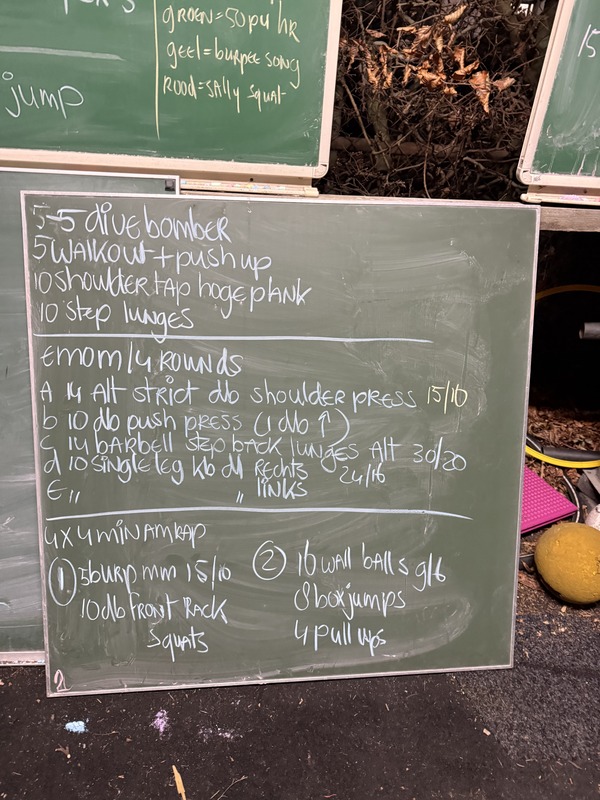 groen = 50 pu hr
geel = burpee song
Rood = sally squat
jump
15
5-5 divebomber
5 walkout + push up
10 shoulder tap hoge plank
10 step lunges
Emom/4 Rounds
A 14 Alt strict db shoulder press 15/10
b 10 db push press (1 db ↑)
C 14 barbell step back lunges Alt 30/20
d 10 single leg kb dl Rechts 24/16
E ,, ,, links
4x4 min AMRAP
① 5 burp mm 15/10
10 db front Rack
squats
② 16 wall balls 9/6
8 boxjumps
4 pull ups
2